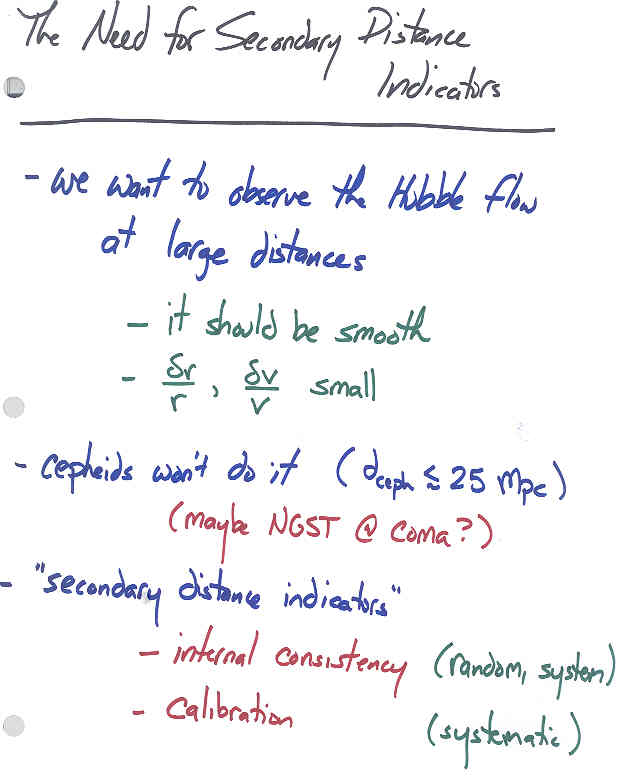 The Need for Secondary Distance
Indicators
- we want to observe the Hubble flow
at large distances
- it should be smooth
- δr/r , δv/v small
- cepheids won't do it (d_ceph ≲ 25 Mpc)
(maybe NGST @ Coma?)
- "secondary distance indicators"
- internal consistency (random, system)
- calibration (systematic)